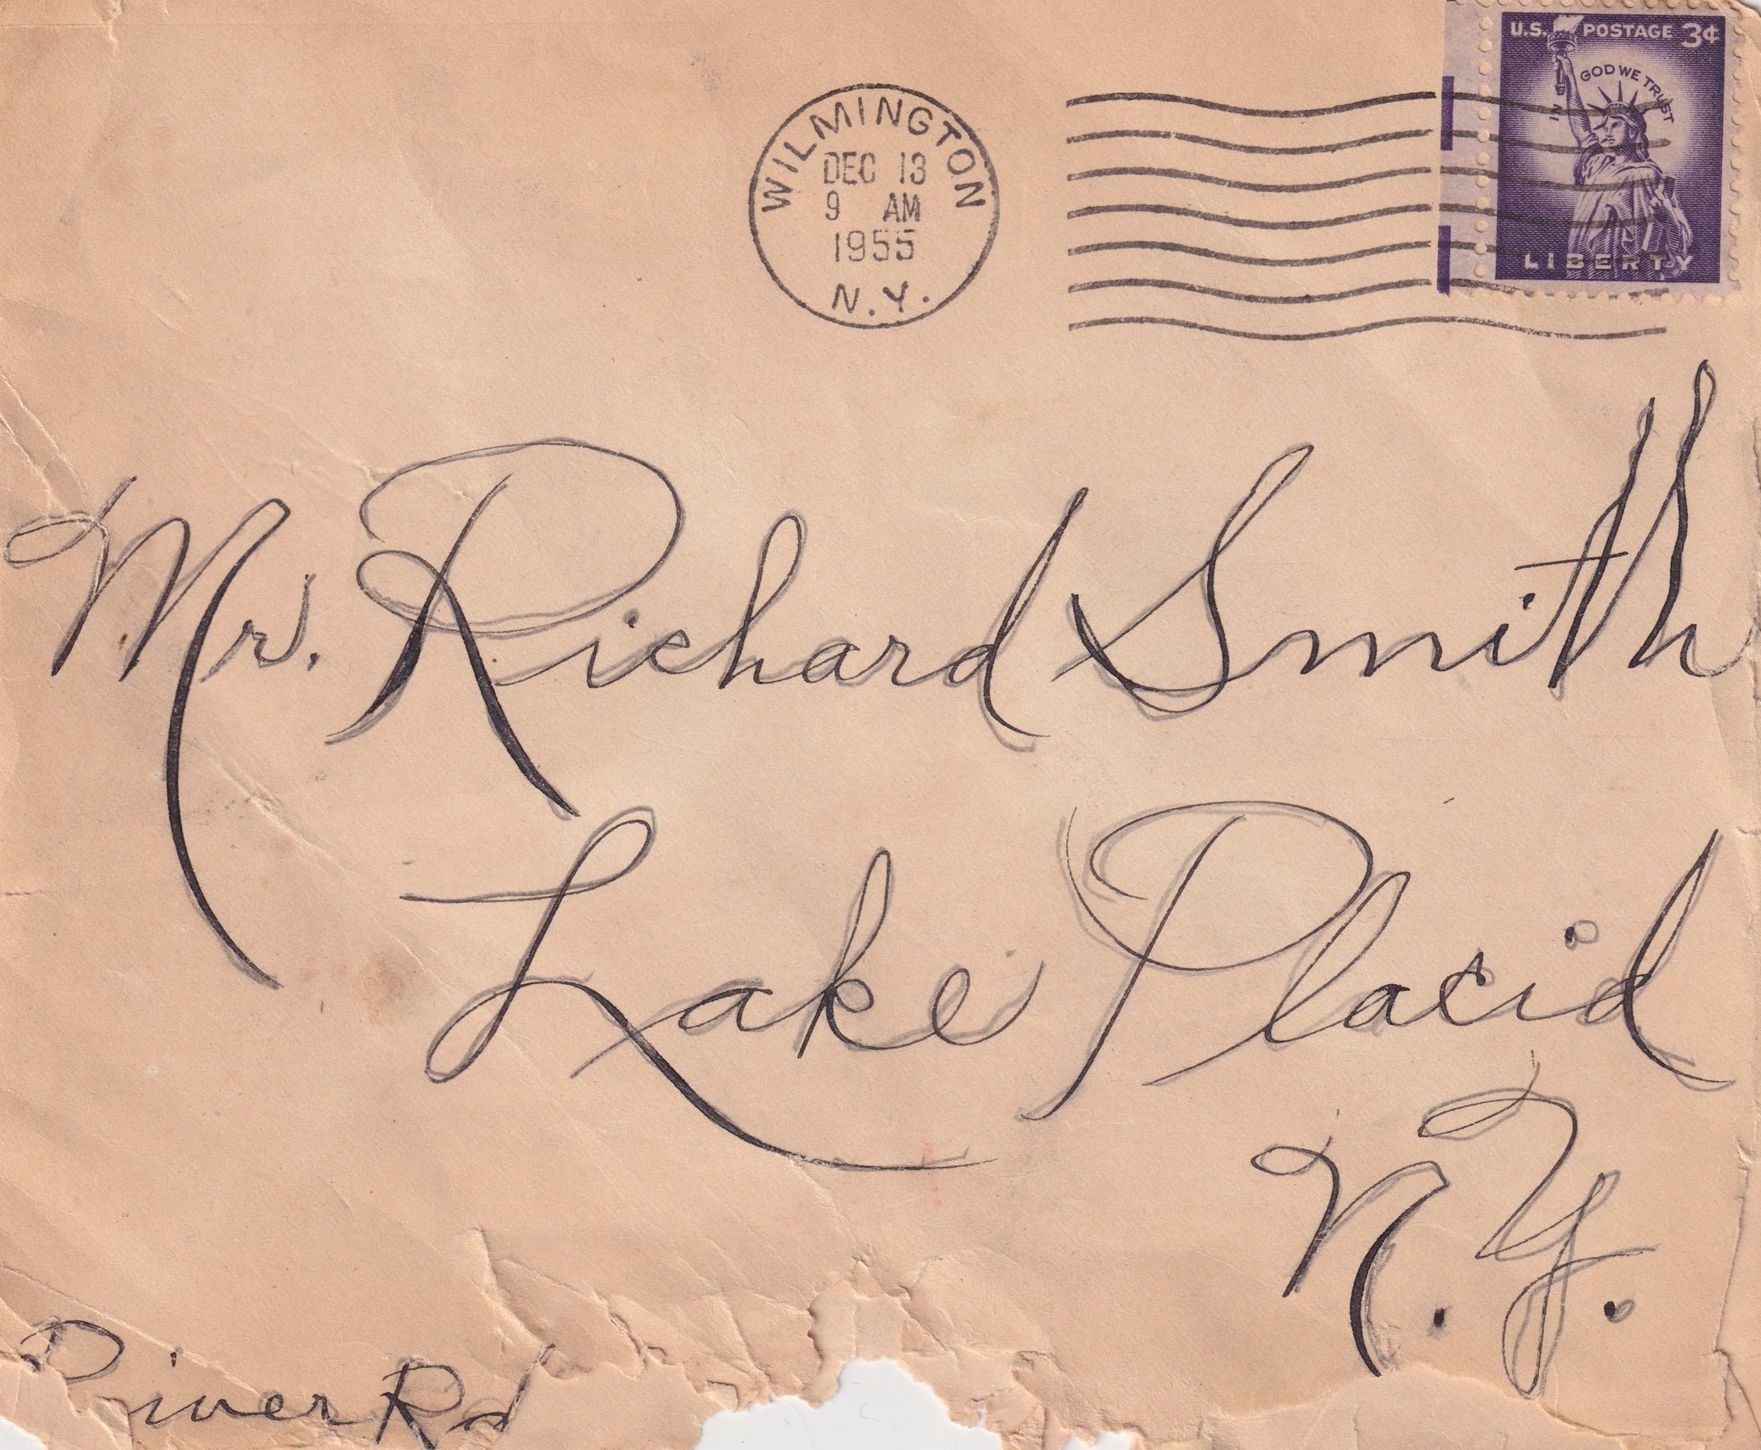 U.S. POSTAGE 3¢
IN GOD WE TRUST
LIBERTY
WILMINGTON
DEC 13
9 AM
1955
N.Y.
Mr. Richard Smith
Lake Placid
N.Y.
River Rd